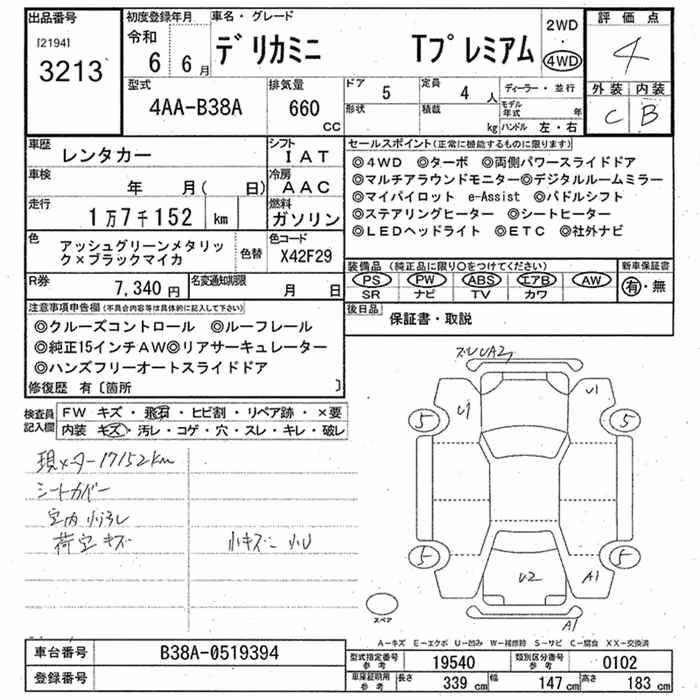 出品番号
[2194]
3213
初度登録年月
令和
6 6月
車名・グレード
デリカミニ Tプレミアム
2WD
4WD
評価点
4
外装 内装
C B
型式
4AA-B38A
排気量
660
CC
ドア
5
定員
4 人
形状
積載
kg
ディーラー・並行
モデル年式 年
ハンドル 左・右
車歴
レンタカー
シフト
IAT
車検
年 月( 日)
冷房
AAC
走行
1万7千152 km
燃料
ガソリン
色
アッシュグリーンメタリック×ブラックマイカ
色替
色コード
X42F29
R券
7,340円
名変通知期限
月 日
セールスポイント(正常に機能するものに限ります)
◎4WD ◎ターボ ◎両側パワースライドドア
◎マルチアラウンドモニター◎デジタルルームミラー
◎マイパイロット e-Assist ◎パドルシフト
◎ステアリングヒーター ◎シートヒーター
◎LEDヘッドライト ◎ETC ◎社外ナビ
装備品(純正品に限り○をつけてください)
PS PW ABS エアB AW
SR ナビ TV カワ
新車保証書
有・無
後日品
保証書・取説
注意事項申告欄(不具合内容等は具体的に記入して下さい)
◎クルーズコントロール ◎ルーフレール
◎純正15インチAW◎リアサーキュレーター
◎ハンズフリーオートスライドドア
修復歴 有〔箇所 〕
検査員記入欄
FW キズ・飛石・ヒビ割・リペア跡・×要
内装 キズ・汚レ・コゲ・穴・スレ・キレ・破レ
現メーター17152km
シートカバー
室内
荷室キズ 小キズ 小U
UA2
U1
U1
5
5
5
5
U2
A1
A1
スペア
A-キズ E-エクボ U-凹み W-補修跡 S-サビ C-腐食 XX-交換済
車台番号
B38A-0519394
登録番号
型式指定番号 参考
19540
類別区分番号 参考
0102
車庫証明用 参考
長さ 339 cm
幅 147 cm
高さ 183 cm